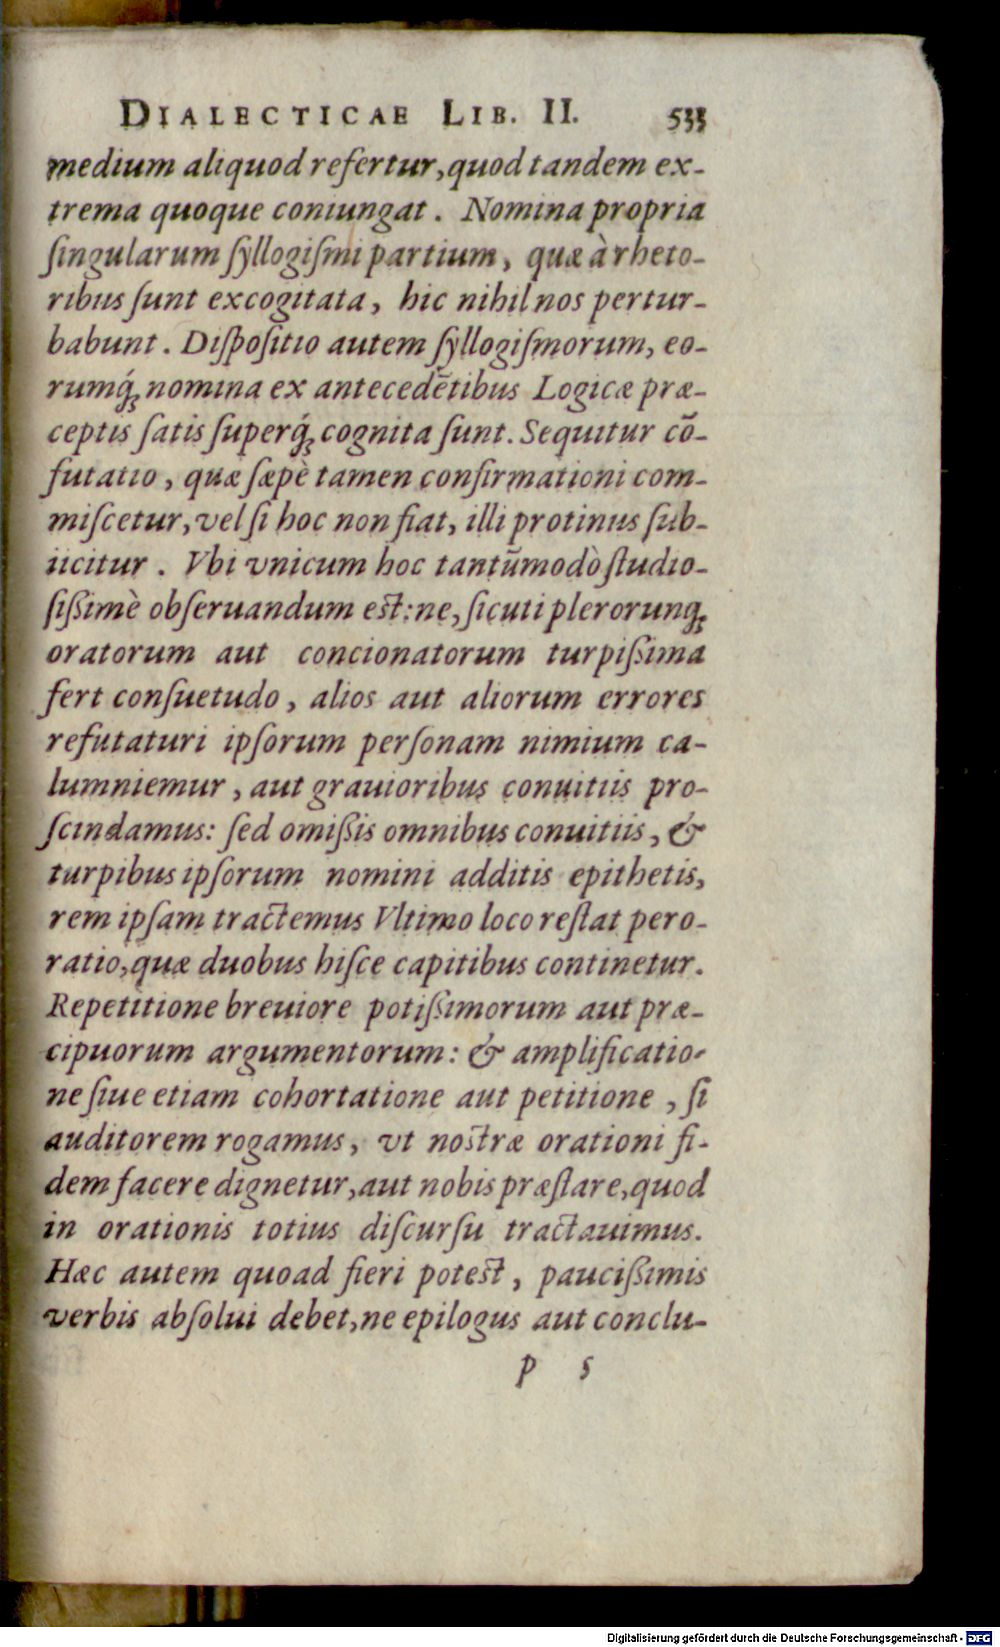 DIALECTICAE LIB. II. 533
medium aliquod refertur, quod tandem ex-
trema quoque coniungat. Nomina propria
ſingularum ſyllogiſmi partium, quæ à rheto-
ribus ſunt excogitata, hic nihil nos pertur-
babunt. Diſpoſitio autem ſyllogiſmorum, eo-
rumq́ꝫ nomina ex antecedẽtibus Logicæ præ-
ceptis ſatis ſuperq́ꝫ cognita ſunt. Sequitur cõ-
futatio, quæ ſæpè tamen confirmationi com-
miſcetur, vel ſi hoc non fiat, illi protinus ſub-
iicitur. Vbi vnicum hoc tantũmodò ſtudio-
ſißimè obſeruandum est: ne, ſicuti plerorunqꝫ
oratorum aut concionatorum turpißima
fert conſuetudo, alios aut aliorum errores
refutaturi ipſorum perſonam nimium ca-
lumniemur, aut grauioribus conuitiis pro-
ſcindamus: ſed omißis omnibus conuitiis, &
turpibus ipſorum nomini additis epithetis,
rem ipſam tractemus Vltimo loco reſtat pero-
ratio, quæ duobus hiſce capitibus continetur.
Repetitione breuiore potißimorum aut præ-
cipuorum argumentorum: & amplificatio-
ne ſiue etiam cohortatione aut petitione, ſi
auditorem rogamus, vt nostræ orationi fi-
dem facere dignetur, aut nobis præſtare, quod
in orationis totius diſcurſu tractauimus.
Hæc autem quoad fieri potest, paucißimis
verbis abſolui debet, ne epilogus aut conclu-
p 5
Digitalisierung gefördert durch die Deutsche Forschungsgemeinschaft - DFG